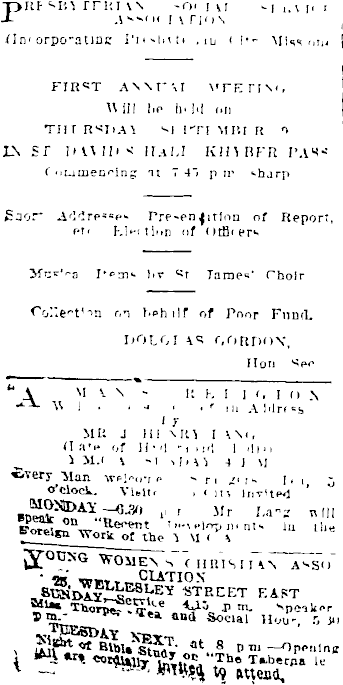 PRESBYTERIAN SOCIAL SERVICE
ASSOCIATION
(Incorporating Presbyterian City Mission)
FIRST ANNUAL MEETING
Will be held on
THURSDAY SEPTEMBER 9
IN ST DAVIDS HALL KHYBER PASS
Commencing at 7.45 p m sharp
Short Addresses Presentation of Report,
etc Election of Officers
Musical Items by St. James' Choir
Collection on behalf of Poor Fund.
DOUGLAS GORDON,
Hon Sec
"A MAN'S RELIGION
Address
by
MR J HENRY LANG
(Late of
Y M.C A SUNDAY 4 P M
Every Man welcome 5
o'clock. City invited
MONDAY—6.30 p Mr Lang will
speak on "Recent Developments in the
Foreign Work of the Y M C A
YOUNG WOMEN S CHRISTIAN ASSO
CIATION
25, WELLESLEY STREET EAST
SUNDAY,—Service 4.15 p m. Speaker
Miss Thorpe, Tea and Social Hour, 5 30
p m.
TUESDAY NEXT. at 8 p m—Opening
Night of Bible Study on "The Taberna le
All are cordially invited to attend.